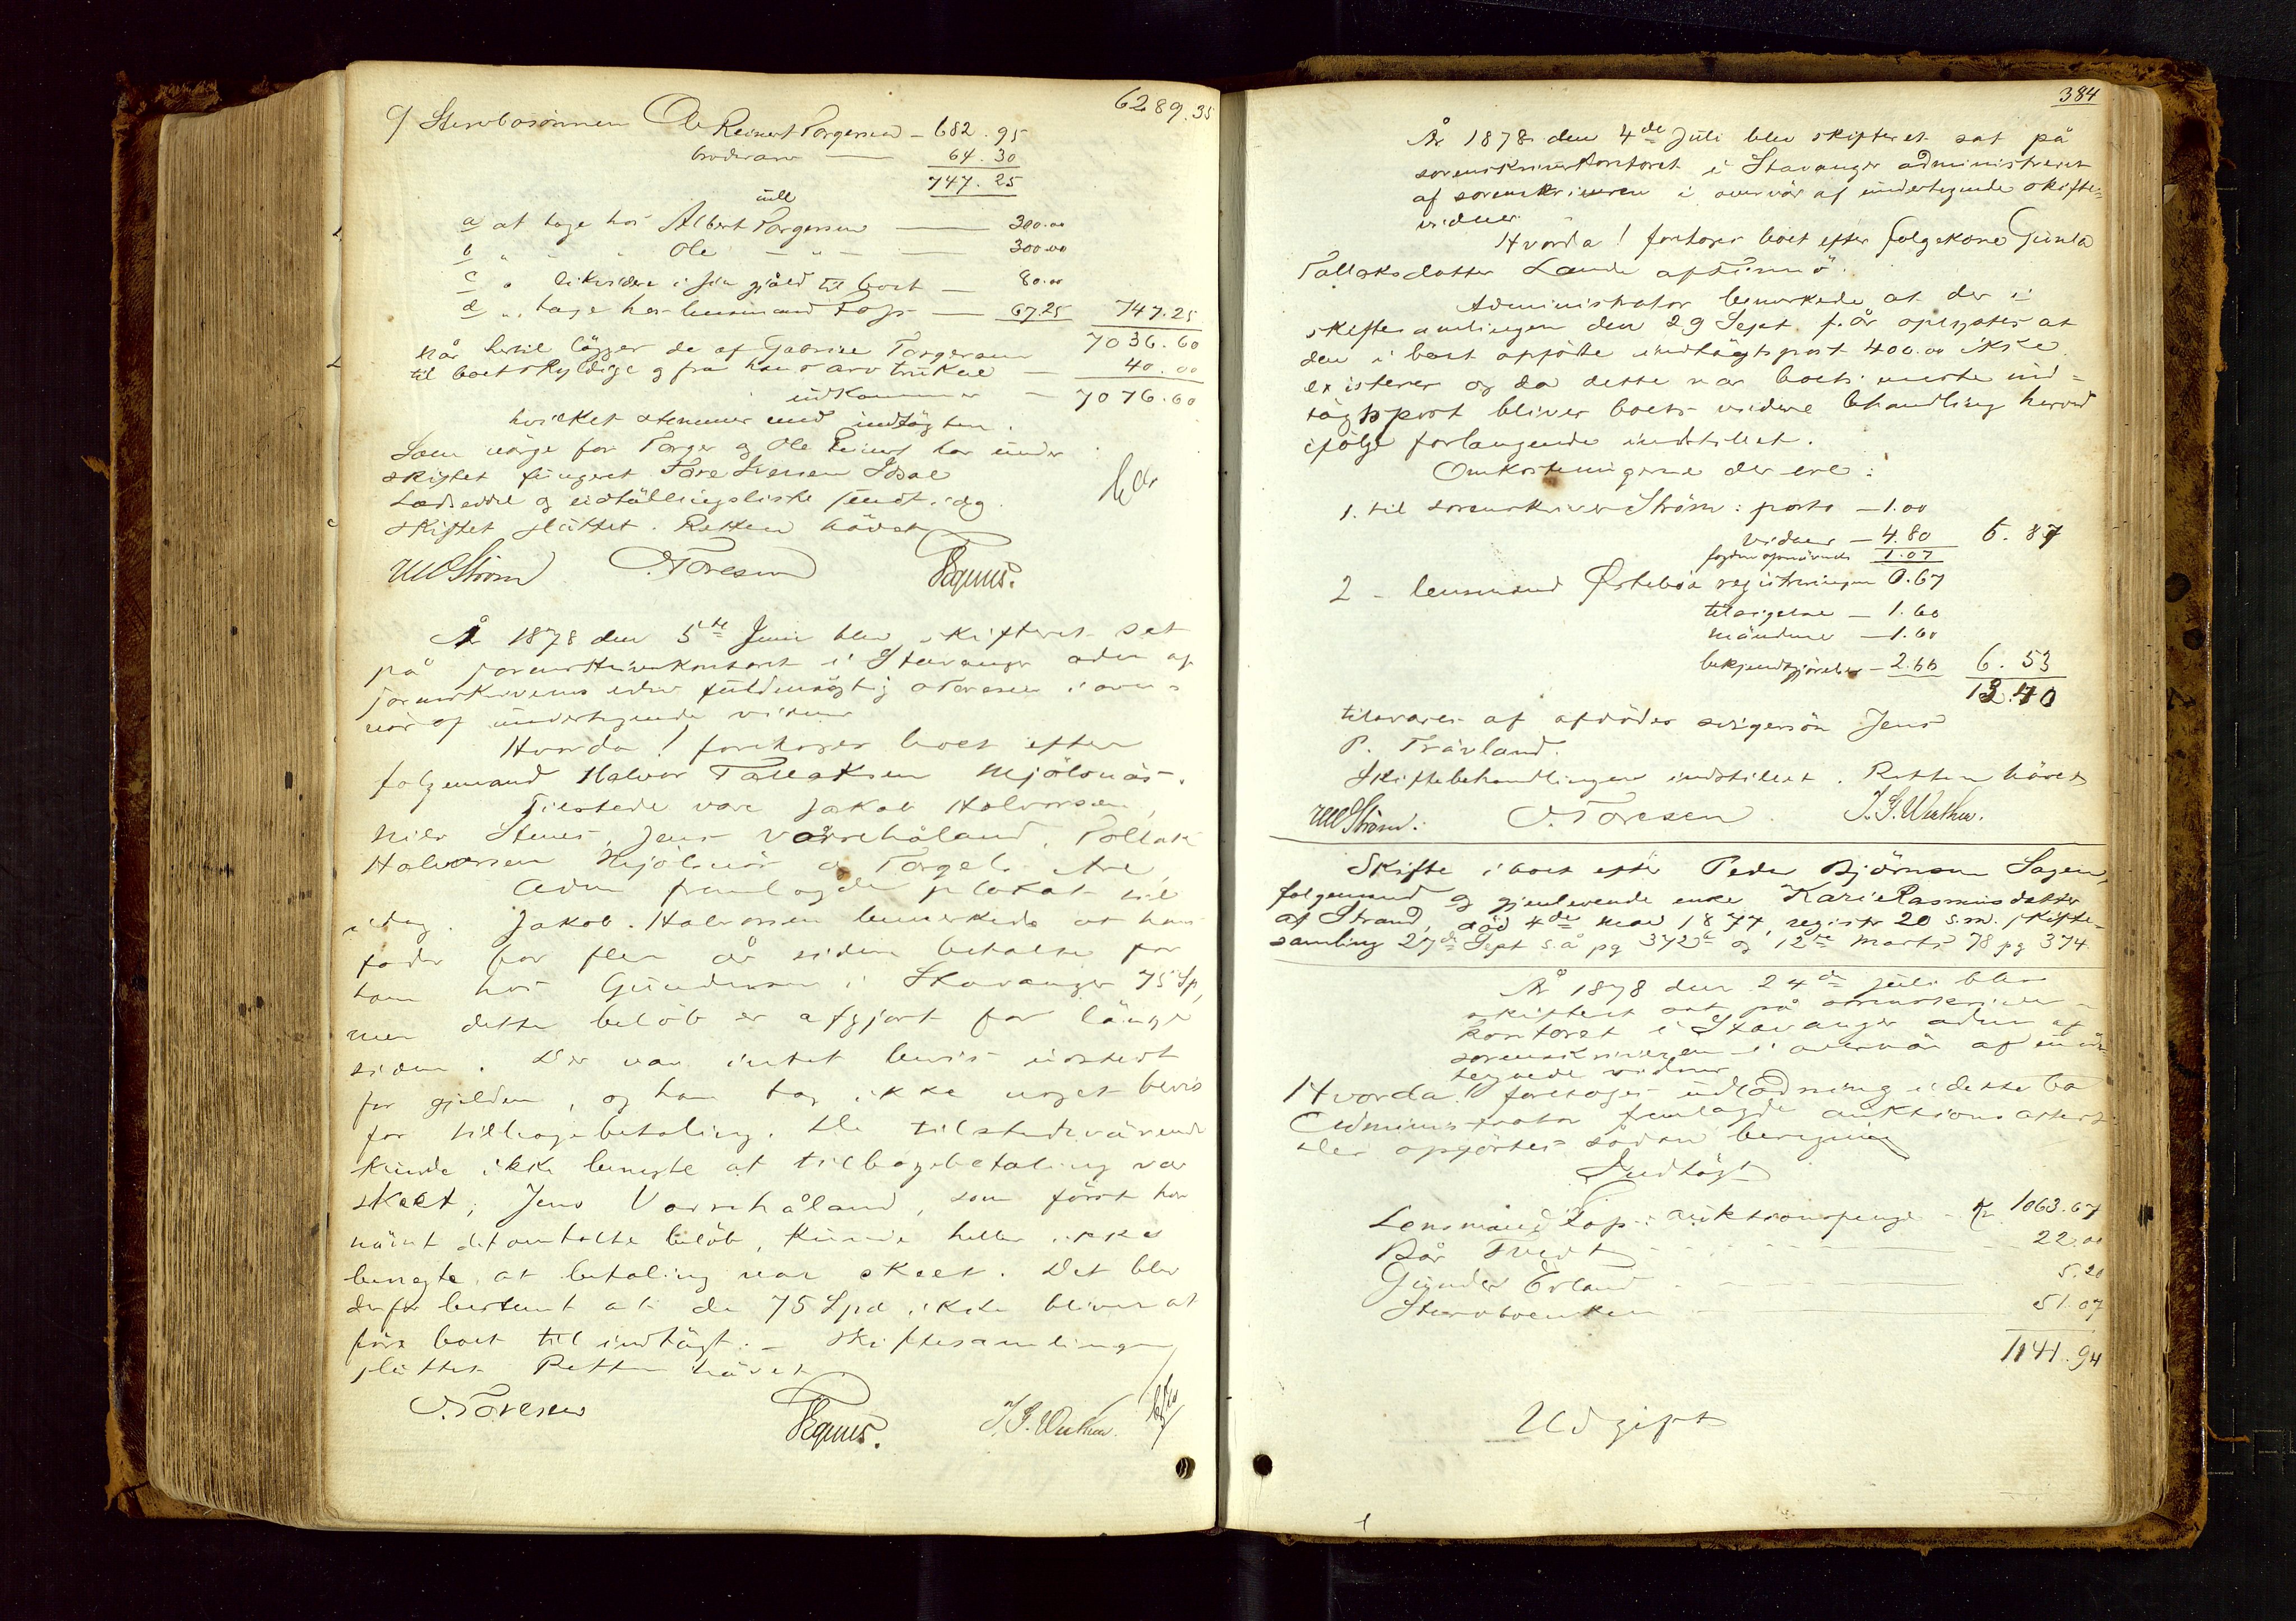 6289.35
c/ Stervbosönnen Ole Reinert Torgersen - 682.95
broderarv — 64.30
747.25
udl
a/ at tage hos Albert Torgersen — 300.00
b " " " Ole - " - — 300.00
c " likvidere i sin gjæld til boet — 80.00
d " tage hos lensmand Fops — 67.25 747.25
7036.60
når hertil lägges de af Gabriel Torgersen
til boet skyldige og fra hans arv trukne — 40.00
udkommer — 7076.60
hvilket stemmer med indtägten.
Som värge for Torger og Ole Reinert har under
skiftet fungeret Tore Iversen Idsal
Lodseddel og udtällingsliste sendt idag.
Skiftet sluttet. Retten hävet
WStröm N Toresen
År 1878 den 5te Juni blev skifteret sat
på sorenskriverkontoret i Stavanger adm af
sorenskriverens edsv fuldmägtig Toresen i over-
vär af undertegnede vidner
Hvorda! foretoges boet efter
folgemand Halvor Tallaksen Mjölsnäs.
Tilstede vare Jakob Halvorsen,
Nils Stenes, Jens Vorrehåland, Tollak
Halvorsen Mjölsnäs og Torgel. Are
Adm fremlagde plakat til
idag. Jakob Halvorsen bemerkede at hans
fader for flere år siden betalte for
ham hos Gundersen i Stavanger 75 Sp,
men dette belöb er afgjort for länge
siden. Der var intet bevis udstedt
for gjelden, og han tog ikke noget bevis
for tilbagebetaling. De tilstedevärende
kunde ikke benegte at tilbagebetaling var
skeet; Jens Vorrehåland, som först har
nävnt det omtalte belöb, kunde heller ikke
benegte, at betaling var skeet. Det blev
derfor bestemt at de 75 Spd ikke bliver at
före boet til indtägt. - Skiftesamlingen
sluttet Retten hävet
N Toresen
384
År 1878 den 4de Juli blev skifteret sat på
sorenskriverkontoret i Stavanger administreret
af sorenskriveren i overvär af undertegnede skifte-
vidner.
Hvorda! foretoges boet efter folgekone Gunla
Tallaksdatter Lande
Administrator bemerkede at der i
skiftesamlingen den 29 Sept f. år oplystes at
den i boet opförte indtägtspost 400.00 ikke
existerer og da dette var boets meste ind-
tägtspost bliver boets videre behandling herved
ifölge forlangende indstillet.
Omkostningerne der ere:
1. til sorenskriver Ström: porto — 1.00
vidner — 4.80 6.87
1.07
2 - lensmand Örteböe registreringen 0.67
tilsigelse — 1.60
mändene — 1.60
bekjendtgjörelse — 2.66 6.53
13.40
tilsvares af afdödes svigersön Jens
P. Trävland.
Skiftebehandlingen indstillet. Retten hävet
WStröm. N Toresen
Skifte i boet efter Peder Björnsen Sagen,
folgemand og gjenlevende enke Kari Rasmusdatter
af Strand, död 4de Mai 1877, registr 20 s.m. skifte-
samling 27de Sept s.å pg 372b og 12te Marts 78 pg 374.
År 1878 den 24de Juli blev
skifteret sat på sorenskriver-
kontoret i Stavanger adm af
sorenskriveren i overvär af under-
tegnede vidner
Hvorda! foretoges udlodning i dette bo
Administrator fremlagde auktions
der opgjörtes sådan beregning
Indtägt
Lensmand Fops: auktionspenge - Kr 1063.67
Bår Tvedt — 22.00
Gunder Erland — 5.20
Stervboenken — 51.07
1141.94
Udgift